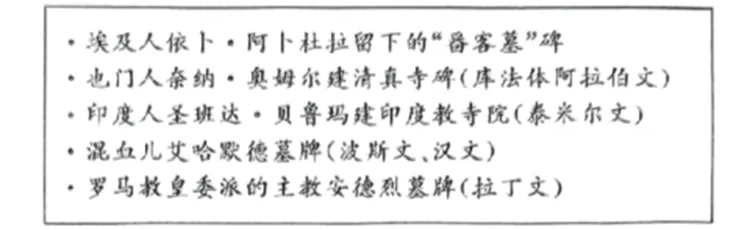 ·埃及人依卜·阿卜杜拉留下的“番客墓”碑
·也门人奈纳·奥姆尔建清真寺碑(库法体阿拉伯文)
·印度人圣班达·贝鲁玛建印度教寺院(泰米尔文)
·混血儿艾哈默德墓牌(波斯文、汉文)
·罗马教皇委派的主教安德烈墓牌(拉丁文)